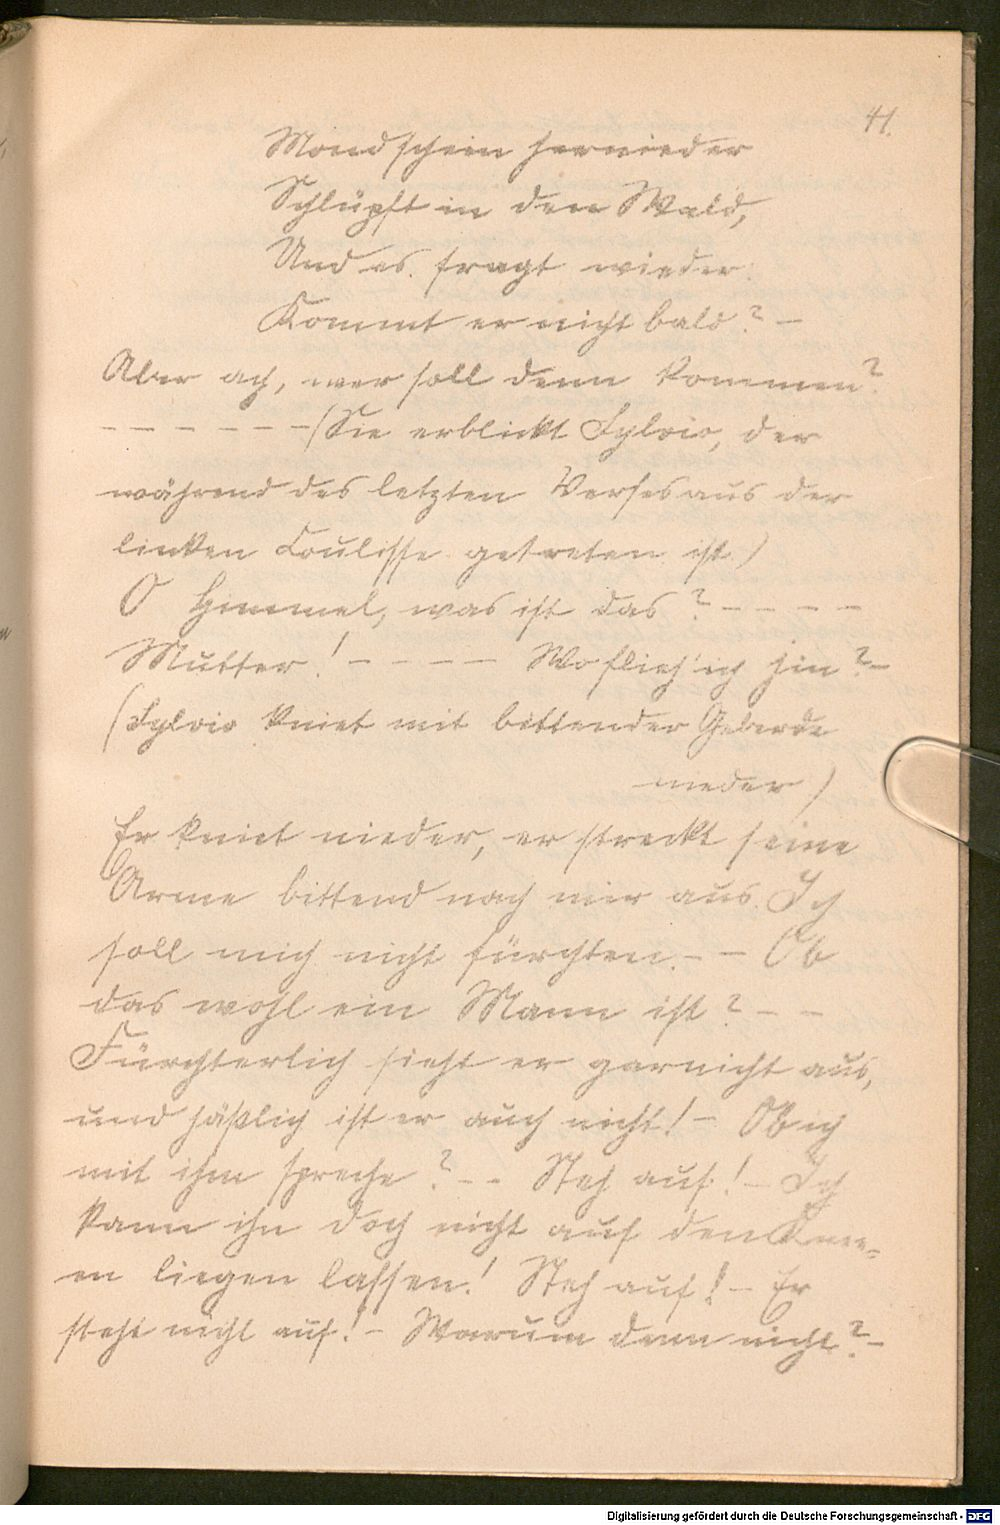 41.
Mondschein hernieder
Schlüpft in den Wald,
Und es fragt wieder:
Kommt er nicht bald? –
Aber ach, wer soll denn kommen?
– – – – – – – (Sie erblickt Sylvio, der
während des letzten Verses aus der
linken Coulisse getreten ist.)
O Himmel, was ist das? – – – –
Mutter! – – – – Wo flieh' ich hin? –
(Sylvio kniet mit bittender Geberde
nieder)
Er kniet nieder, er streckt seine
Arme bittend nach mir aus. Ich
soll mich nicht fürchten. – – Ob
das wohl ein Mann ist? – –
Fürchterlich sieht er garnicht aus,
und häßlich ist er auch nicht! – Ob ich
mit ihm spreche? – – Steh auf! – Ich
kann ihn doch nicht auf den Knie-
en liegen lassen! Steh auf! – Er
steht nicht auf! – Warum denn nicht? –
Digitalisierung gefördert durch die Deutsche Forschungsgemeinschaft - DFG